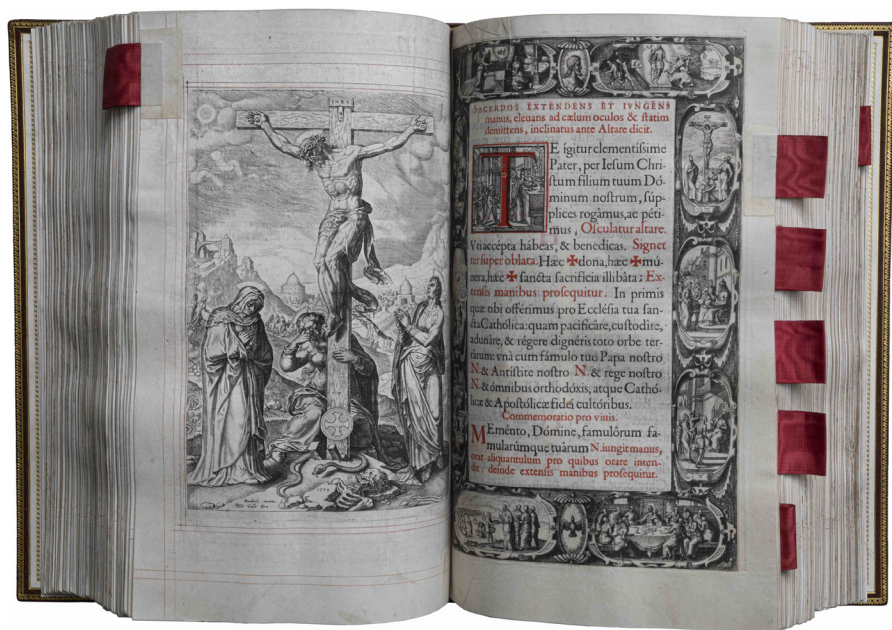 INRI
SACERDOS EXTENDENS ET IVNGENS
manus, eleuans ad cælum oculos & statim
demittens, inclinatus ante Altare dicit.
TE igitur clementissime
Pater, per Iesum Chri-
stum filium tuum Dó-
minum nostrum, súp-
plices rogámus, ac péti-
mus, Osculatur altare.
Vti accepta hábeas, & benedícas. Signet
ter super oblata. Hæc ✠ dona, hæc ✠ mú-
nera, hæc ✠ sancta sacrificia illibáta; Ex-
tensis manibus prosequitur. In primis
quæ tibi offérimus pro Ecclésia tua san-
cta Cathólica: quam pacificáre, custodíre,
adunáre, & régere dignéris toto orbe ter-
rárum: vnà cum fámulo tuo Papa nostro
N. & Antístite nostro N. & rege nostro
N. & ómnibus orthodóxis, atque Cathó-
licæ & Apostólicæ fidei cultóribus.
Commemoratio pro viuis.
MEménto, Dómine, famulórum fa-
mularúmque tuárum N. iungit manus,
orat aliquantulum pro quibus orare inten-
dit: deinde extensis manibus prosequitur.